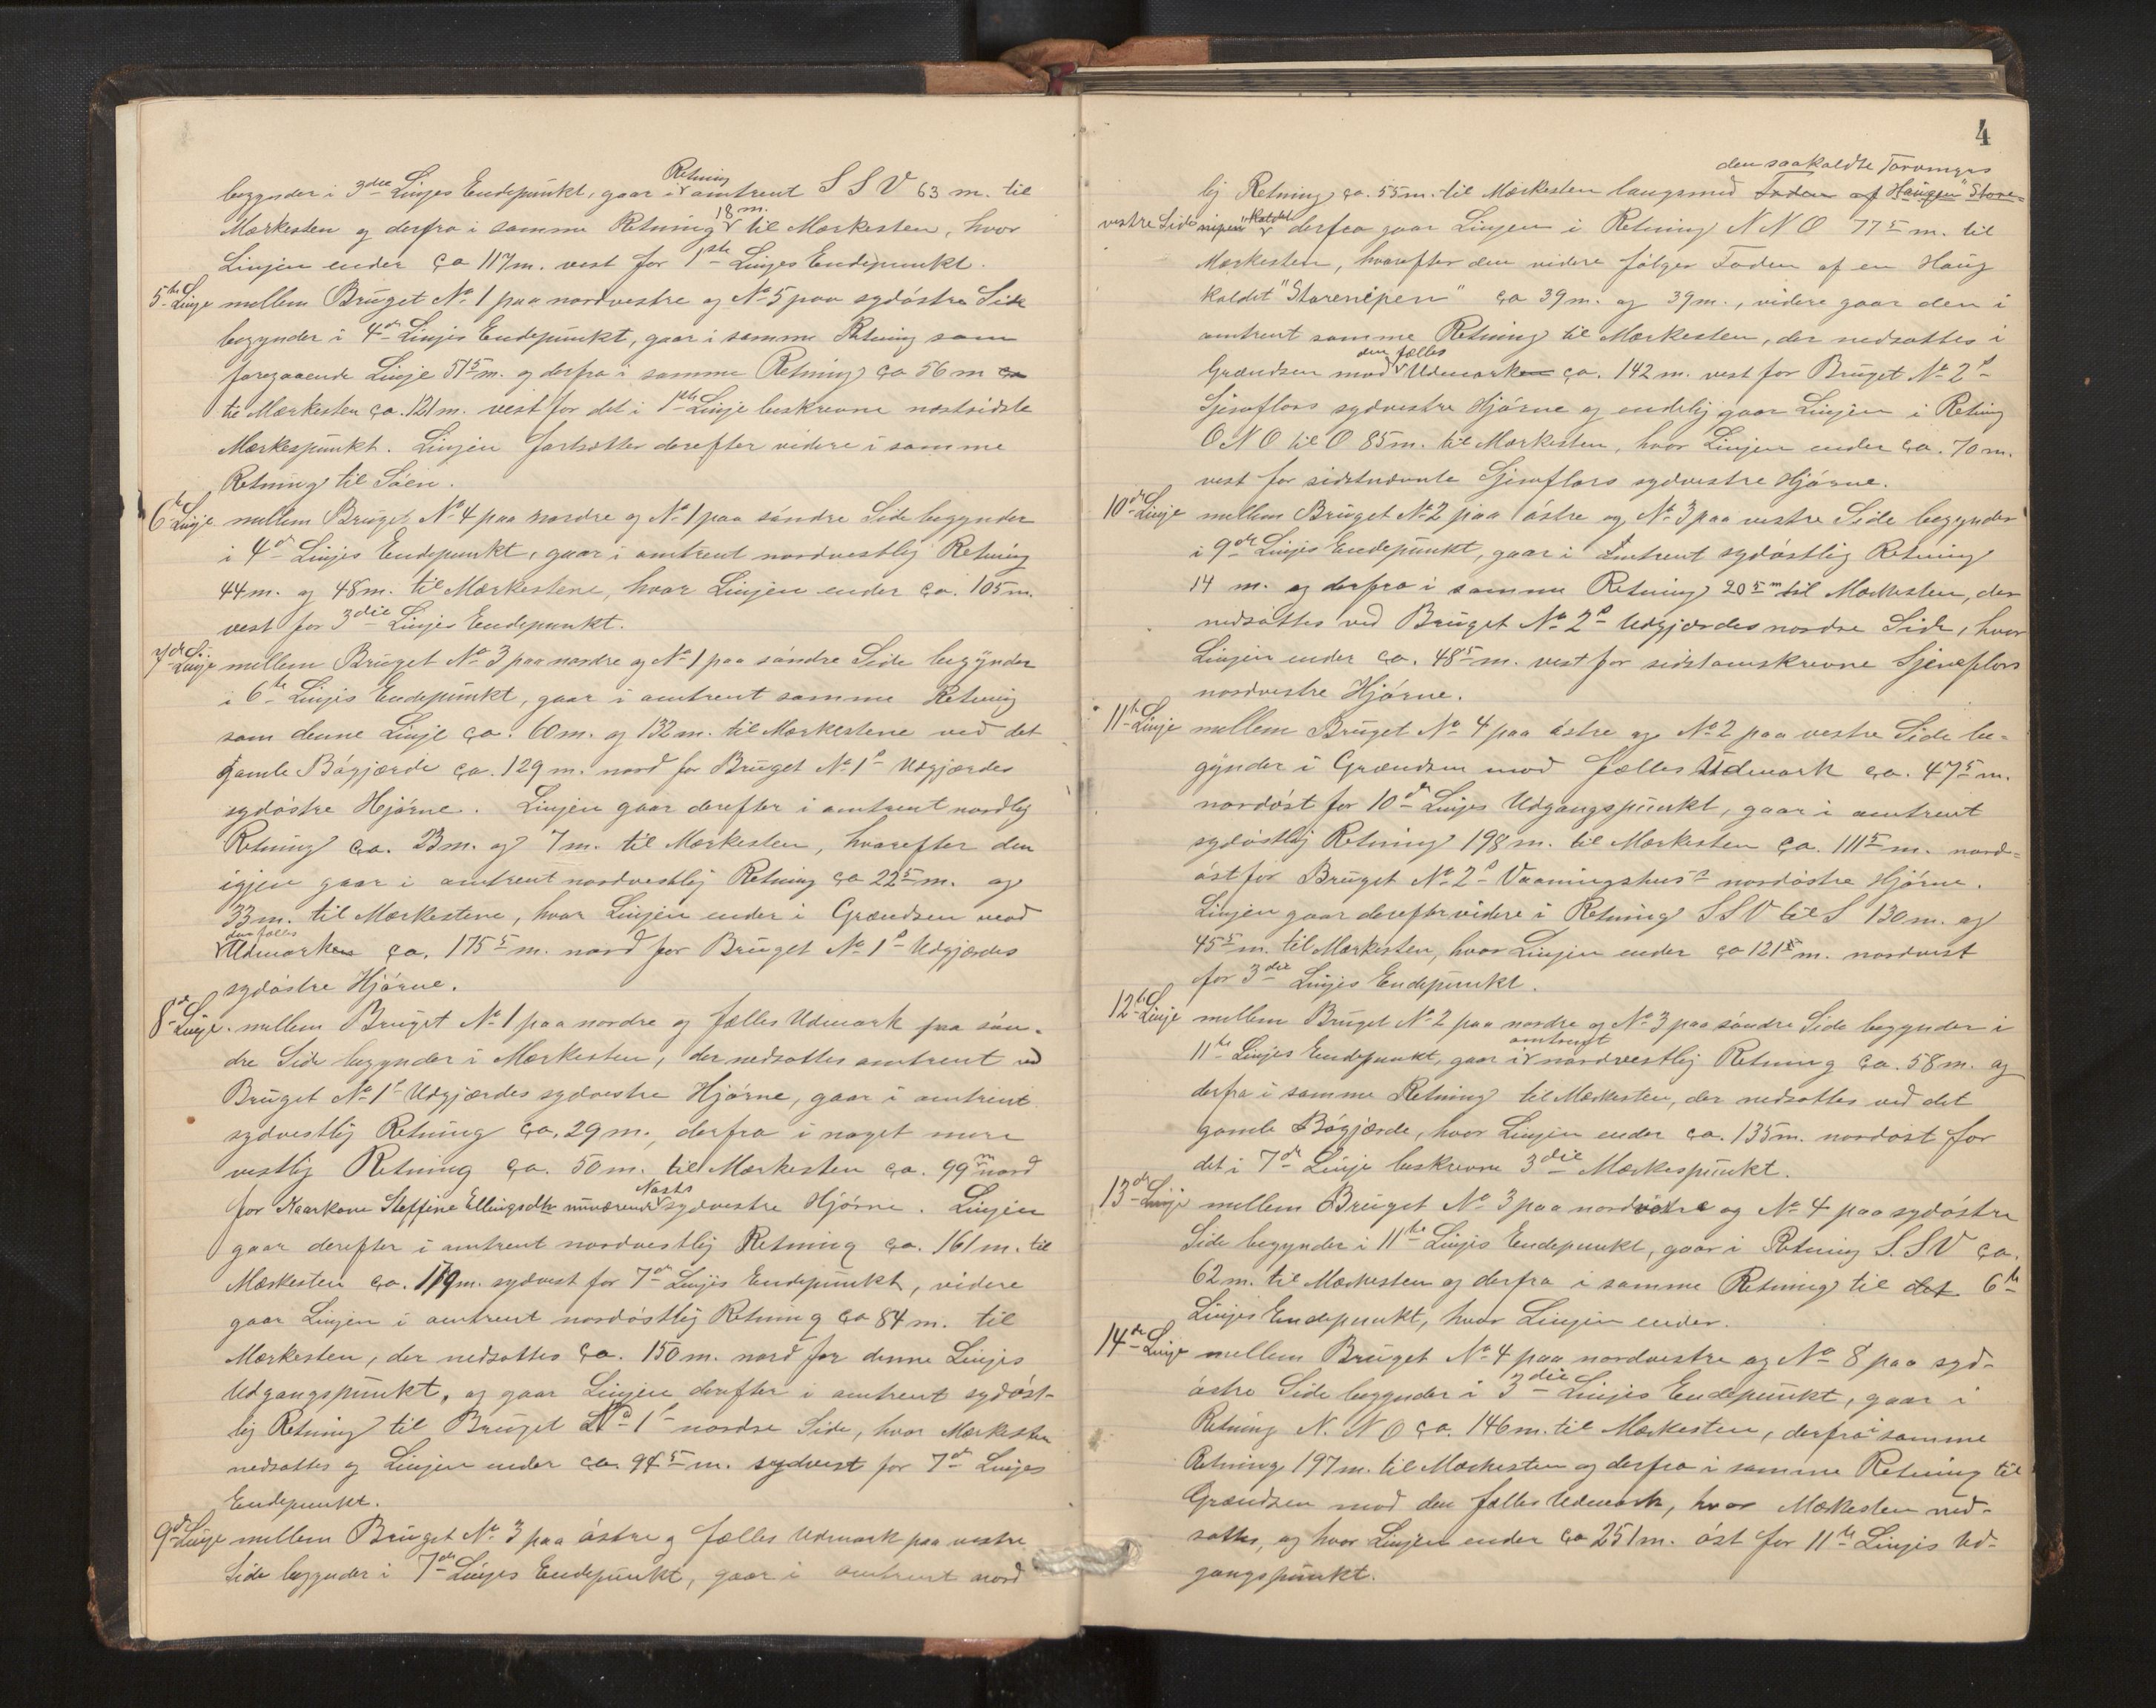 begynder i 3die Linjes Endepunkt, gaar i Retning omtrent S S V 63 m. til
Mærkesten og derfra i samme Retning 18 m. til Mærkesten, hvor
Linjen ender ca 117 m. vest for 1ste Linjes Endepunkt.
5te Linje mellem Bruget No 1 paa nordvestre og No 5 paa sydöstre Side
begynder i 4de Linjes Endepunkt, gaar i samme Retning som
foregaaende Linje 51 5 m. og derfra i samme Retning ca 56 m ca
til Mærkesten ca. 121 m. vest for det i 1ste Linje beskrevne næstsidste
Mærkespunkt. Linjen fortsætter derefter videre i samme
Retning til Söen.
6te Linje mellem Bruget No 4 paa nordre og No 1 paa söndre Side begynder
i 4de Linjes Endepunkt, gaar i omtrent nordvestlig Retning
44 m. og 48 m. til Mærkestene, hvor Linjen ender ca. 105 m.
vest for 3die Linjes Endepunkt.
7de Linje mellem Bruget No 3 paa nordre og No 1 paa söndre Side begynder
i 6te Linjes Endepunkt, gaar i omtrent samme Retning
som denne Linje ca. 60 m. og 132 m. til Mærkestene ved det
gamle Bögjærde ca. 129 m. nord for Bruget No 1s Udgjærdes
sydöstre Hjörne. Linjen gaar derefter i omtrent nordlig
Retning ca. 23 m. og 7 m. til Mærkesten, hvorefter den
igjen gaar i omtrent nordvestlig Retning ca 22 5 m. og
33 m. til Mærkestene, hvor Linjen ender i Grændsen mod
den fælles Udmarken ca. 175 5 m. nord for Bruget No 1s Udgjærdes
sydöstre Hjörne.
8de Linje. mellem Bruget No 1 paa nordre og fælles Udmark paa sön-
dre Side begynder i Mærkesten, der nedsættes omtrent ved
Bruget No 1s Udgjærdes sydvestre Hjörne, gaar i omtrent
sydvestlig Retning ca. 29 m., derfra i noget mere
vestlig Retning ca. 50 m. til Mærkesten ca. 99 m nord
for Kaarkone Steffine Ellingsdtr nuværende Nøsts sydvestre Hjörne. Linjen
gaar derefter i omtrent nordvestlig Retning ca. 161 m. til
Mærkesten ca. 179 m. sydvest for 7de Linjes Endepunkt, videre
gaar Linjen i omtrent nordöstlig Retning ca 84 m. til
Mærkesten, der nedsættes ca. 150 m. nord for denne Linjes
Udgangspunkt, og gaar Linjen derefter i omtrent sydöst-
lig Retning til Bruget No 1s nordre Side, hvor Mærkesten
nedsættes og Linjen ender ca. 94 5 m. sydvest for 7de Linjes
Endepunkt.
9de Linje mellem Bruget No 3 paa östre og fælles Udmark paa vestre
Side begynder i 7de Linjes Endepunkt, gaar i omtrent nord
4
den saakaldte Torvmyrs
lig Retning ca. 55 m. til Mærkesten langsmed Foden af Haugen "Store-
vestre Side nipen" kaldet derfra gaar Linjen i Retning N N O 77 5 m. til
Mærkesten, hvorefter den videre fölger Foden af en Haug
kaldet "Storenipen" ca 39 m. og 39 m., videre gaar den i
omtrent samme Retning til Mærkesten, der nedsættes i
Grændsen mod den fælles Udmarken ca. 142 m. vest for Bruget No 2s
Sjeneflors sydvestre Hjörne og endelig gaar Linjen i Retning
O N O til O 85 m. til Mærkesten, hvor Linjen ender ca. 70 m.
vest for sidstnævnte Sjeneflors sydvestre Hjörne.
10de Linje mellem Bruget No 2 paa östre og No 3 paa vestre Side begynder
i 9de Linjes Endepunkt, gaar i omtrent sydöstlig Retning
14 m. og derfra i samme Retning 20 5 m til Mærkesten, der
nedsættes ved Bruget No 2s Udgjærdes nordre Side, hvor
Linjen ender ca. 48 5 m. vest for sidstomskrevne Sjeneflors
nordvestre Hjörne.
11te Linje mellem Bruget No 4 paa östre og No 2 paa vestre Side be-
gynder i Grændsen mod fælles Udmark ca. 47 5 m.
nordöst for 10de Linjes Udgangspunkt, gaar i omtrent
sydöstlig Retning 198 m. til Mærkesten ca. 111 5 m. nord-
öst for Bruget No 2s Vaaningshus's nordöstre Hjörne.
Linjen gaar derefter videre i Retning S S V til S 130 m. og
45 5 m. til Mærkesten, hvor Linjen ender ca 121 5 m. nordvest
for 3die Linjes Endepunkt.
12te Linje mellem Bruget No 2 paa nordre og No 3 paa söndre Side begynder i
11te Linjes Endepunkt, gaar i omtrent nordvestlig Retning ca. 58 m. og
derfra i samme Retning til Mærkesten, der nedsættes ved det
gamle Bögjærde, hvor Linjen ender ca. 135 m. nordöst for
det i 7de Linje beskrevne 3die Mærkespunkt.
13de Linje mellem Bruget No 3 paa nordvestre og No 4 paa sydöstre
Side begynder i 11te Linjes Endepunkt, gaar i Retning S. S V ca.
62 m. til Mærkesten og derfra i samme Retning til det 6te
Linjes Endepunkt, hvor Linjen ender.
14de Linje mellem Bruget No 4 paa nordvestre og No 8 paa syd-
östre Side begynder i 3die Linjes Endepunkt, gaar i
Retning N. N O ca. 146 m. til Mærkesten, derfra i samme
Retning 197 m. til Mærkesten og derfra i samme Retning til
Grændsen mod den fælles Udmark, hvor Mærkesten ned-
sættes, og hvor Linjen ender ca 251 m. öst for 11te Linjes Ud-
gangspunkt.